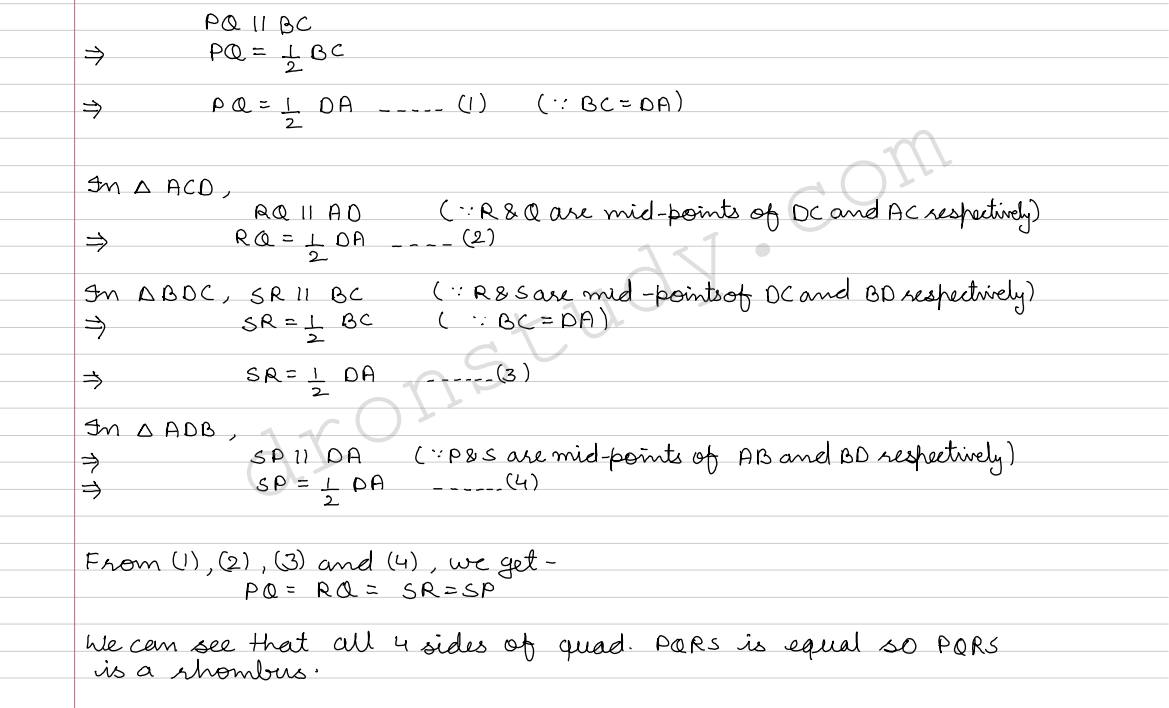 PQ || BC
⇒ PQ = 1/2 BC
⇒ PQ = 1/2 DA ----- (1) (∵ BC = DA)
In △ ACD,
RQ || AD (∵ R & Q are mid-points of DC and AC respectively)
⇒ RQ = 1/2 DA ---- (2)
In △BDC, SR || BC (∵ R & S are mid-points of DC and BD respectively)
⇒ SR = 1/2 BC ( ∵ BC = DA)
⇒ SR = 1/2 DA ------(3)
In △ ADB,
⇒ SP || DA (∵ P & S are mid-points of AB and BD respectively)
⇒ SP = 1/2 DA ------(4)
From (1), (2), (3) and (4), we get -
PQ = RQ = SR = SP
We can see that all 4 sides of quad. PQRS is equal so PQRS
is a rhombus.
dronstudy.com